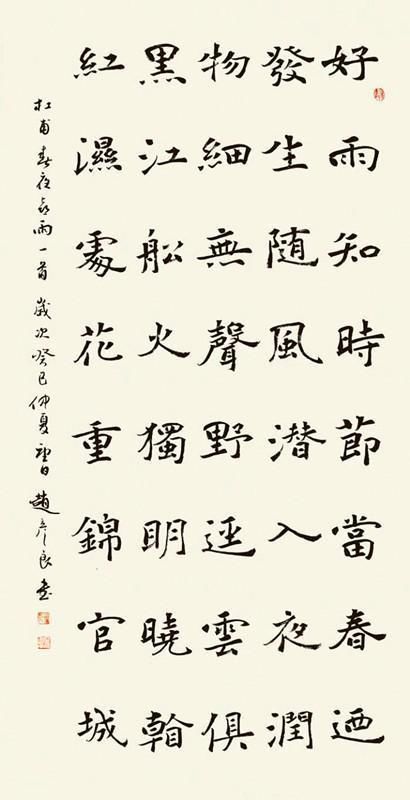 好雨知時節當春迺
發生随風潜入夜潤
物細無聲野逕雲俱
黑江船火獨明曉看
紅濕處花重錦官城
杜甫春夜喜雨一首 歲次癸巳仲夏望日 趙彦良書